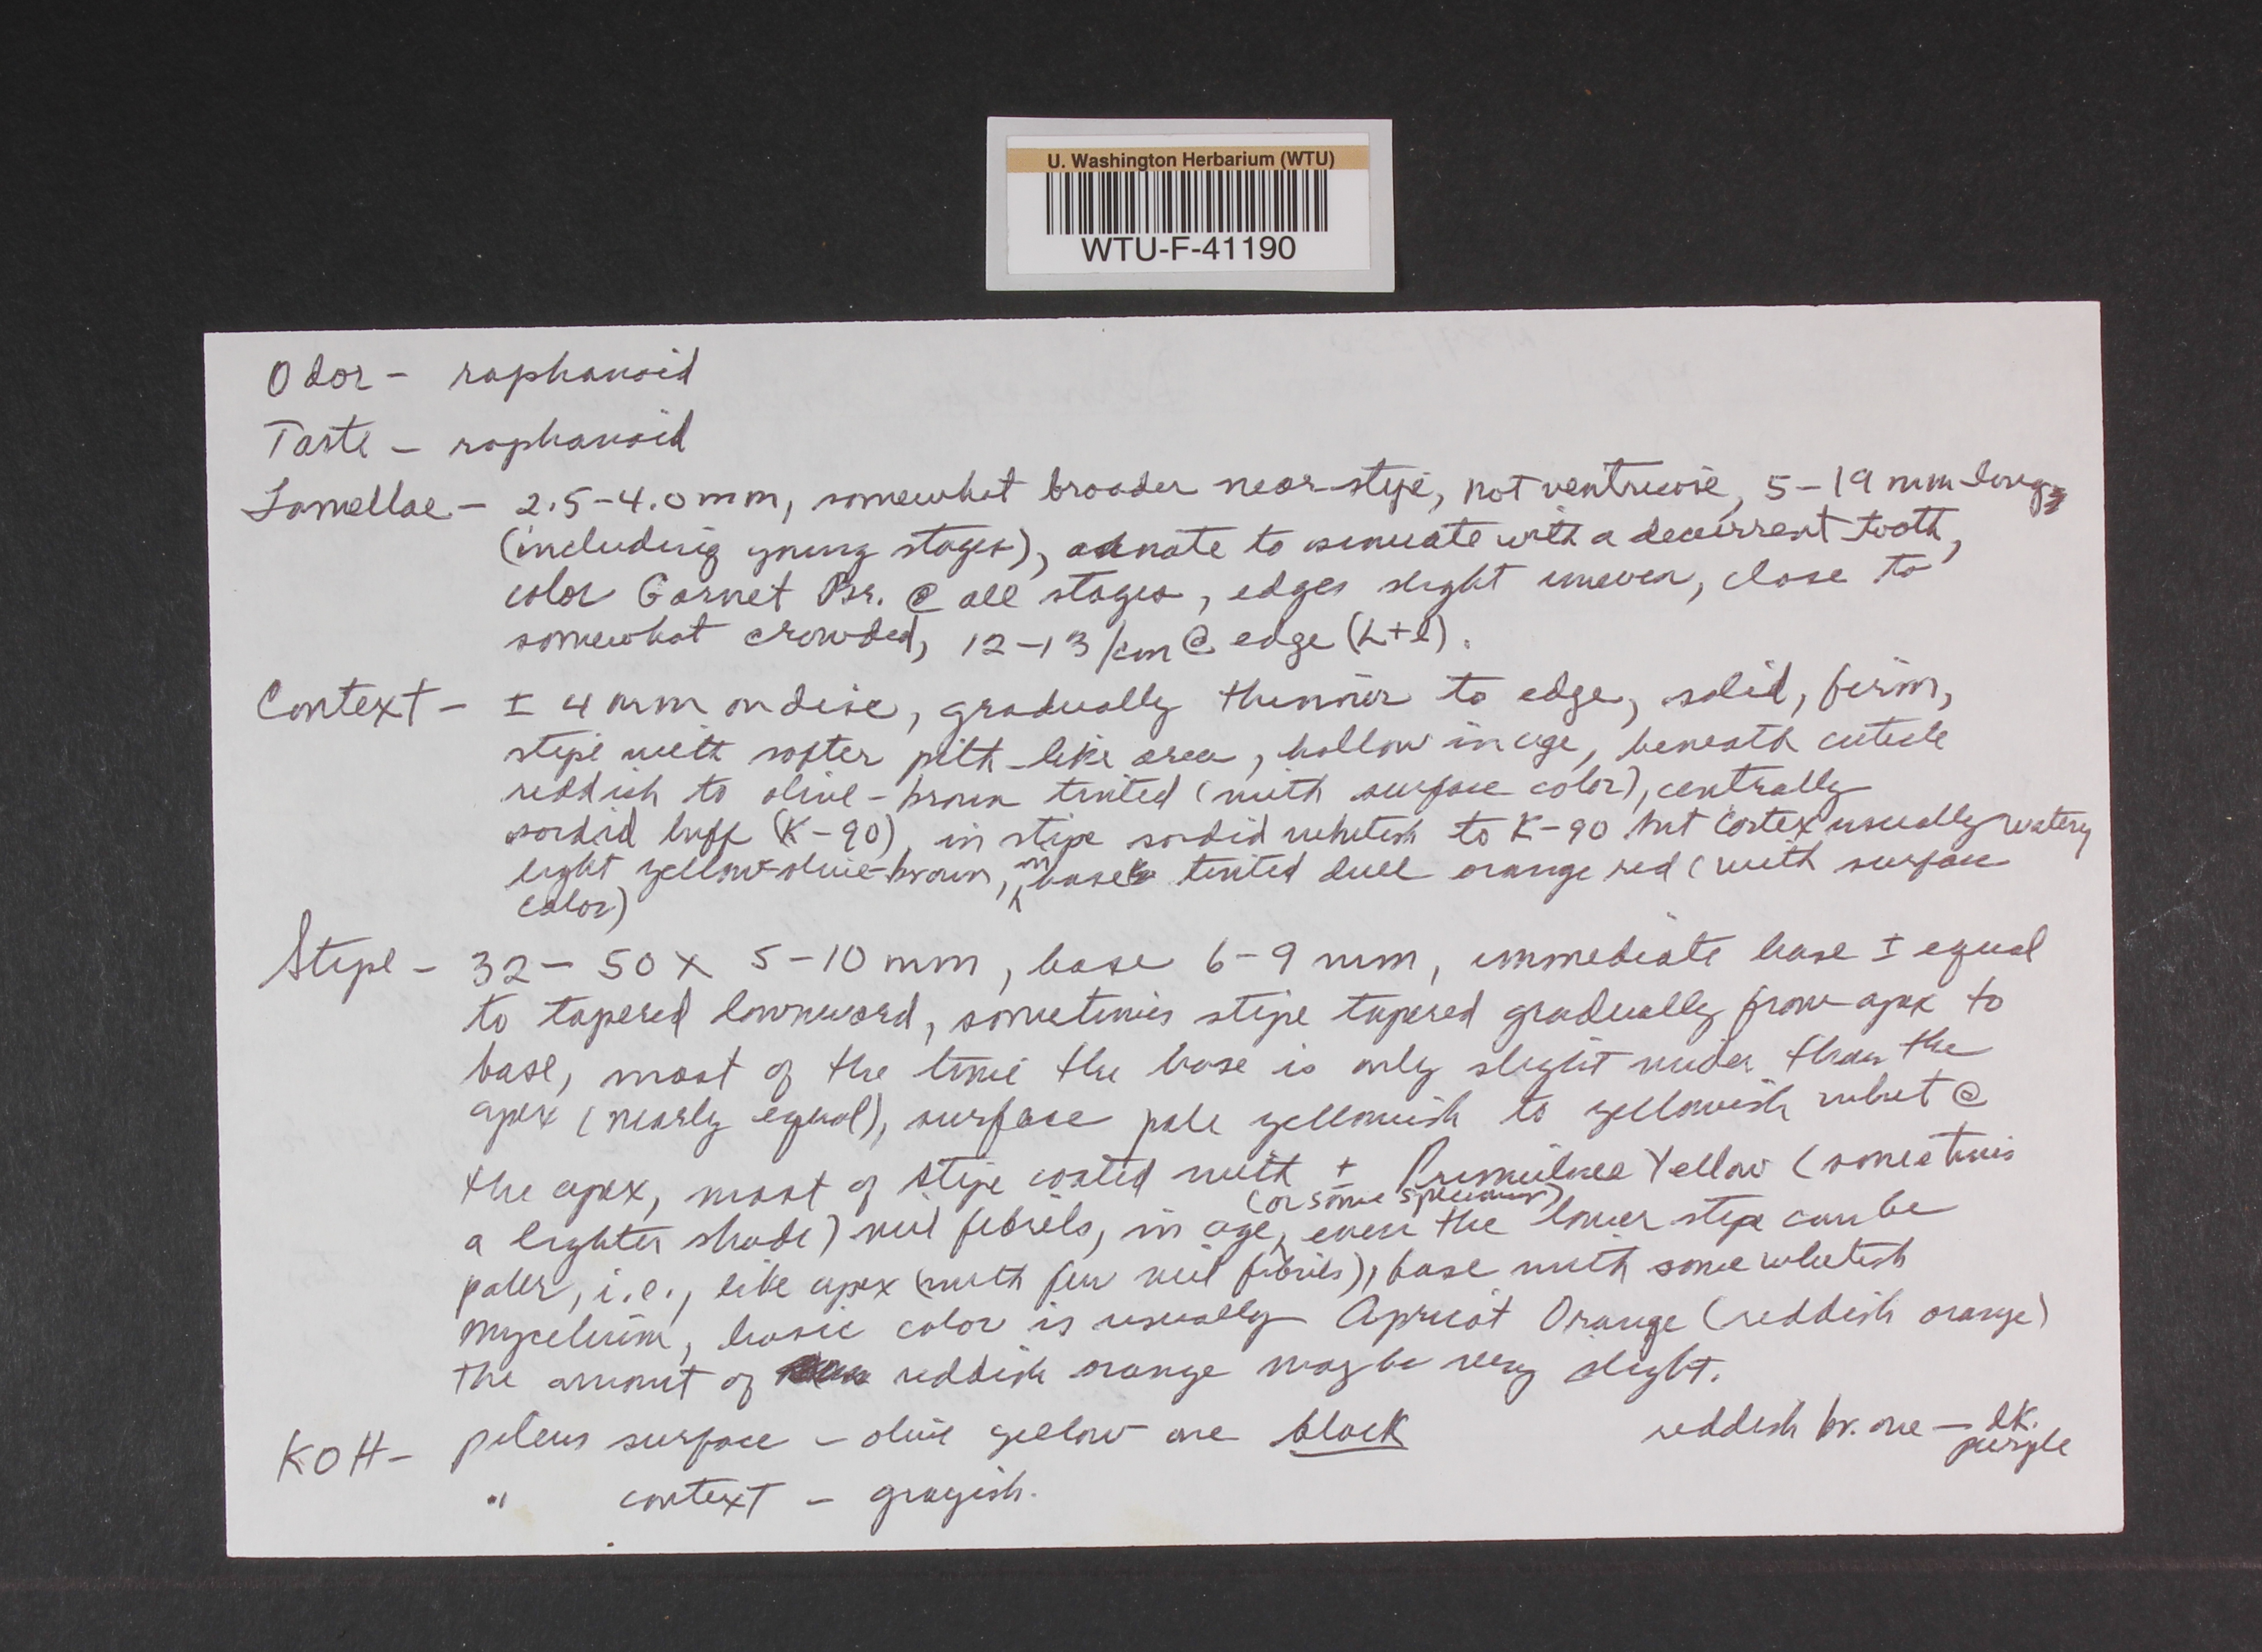 U. Washington Herbarium (WTU)
WTU-F-41190
Odor - raphanoid
Taste - raphanoid
Lamellae - 2.5-4.0 mm, somewhat broader near stipe, not ventricose, 5-19 mm long,
(including young stages), adnate to sinuate with a decurrent tooth,
color Garnet Br. @ all stages, edges slight uneven, close to
somewhat crowded, 12-13/cm @ edge (L+l).
Context - ± 4 mm on disc, gradually thinner to edge, solid, firm,
stipe with softer pith-like area, hollow in age, beneath cuticle
reddish to olive-brown tinted (with surface color), centrally
sordid buff (K-90), in stipe sordid whitish to K-90 but cortex usually watery
light yellow-olive-brown, in base tinted dull orange red (with surface
color)
Stipe - 32-50 x 5-10 mm, base 6-9 mm, immediate base ± equal
to tapered downward, sometimes stipe tapered gradually from apex to
base, most of the time the base is only slight wider than the
apex (nearly equal), surface pale yellowish to yellowish whit @
the apex, most of stipe coated with ± Primuline Yellow (sometimes
a lighter shade) veil fibrils, in age (or some specimens), even the lower stipe can be
paler, i.e., like apex (with few veil fibrils), base with some whitish
mycelium, basic color is usually Apricot Orange (reddish orange)
the amount of reddish orange may be very slight.
KOH - pileus surface - olive yellow one black reddish br. one - dk. purple
" context - grayish.